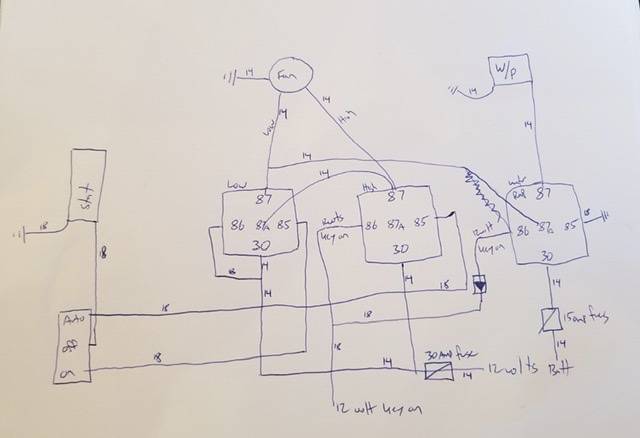 Fan
14
14
High
Low
14
W/P
14
14
14
14
Low
87
86 87a 85
30
High
87
86 87A 85
30
12volts
key on
87
86 87a 85
30
18
12volt
key on
18
18
18
14
14
14
18
18
Auto
18
18
14
30 Amp fuse
14
12 volts
14
15 amp fuse
14
Batt
12 volt key on